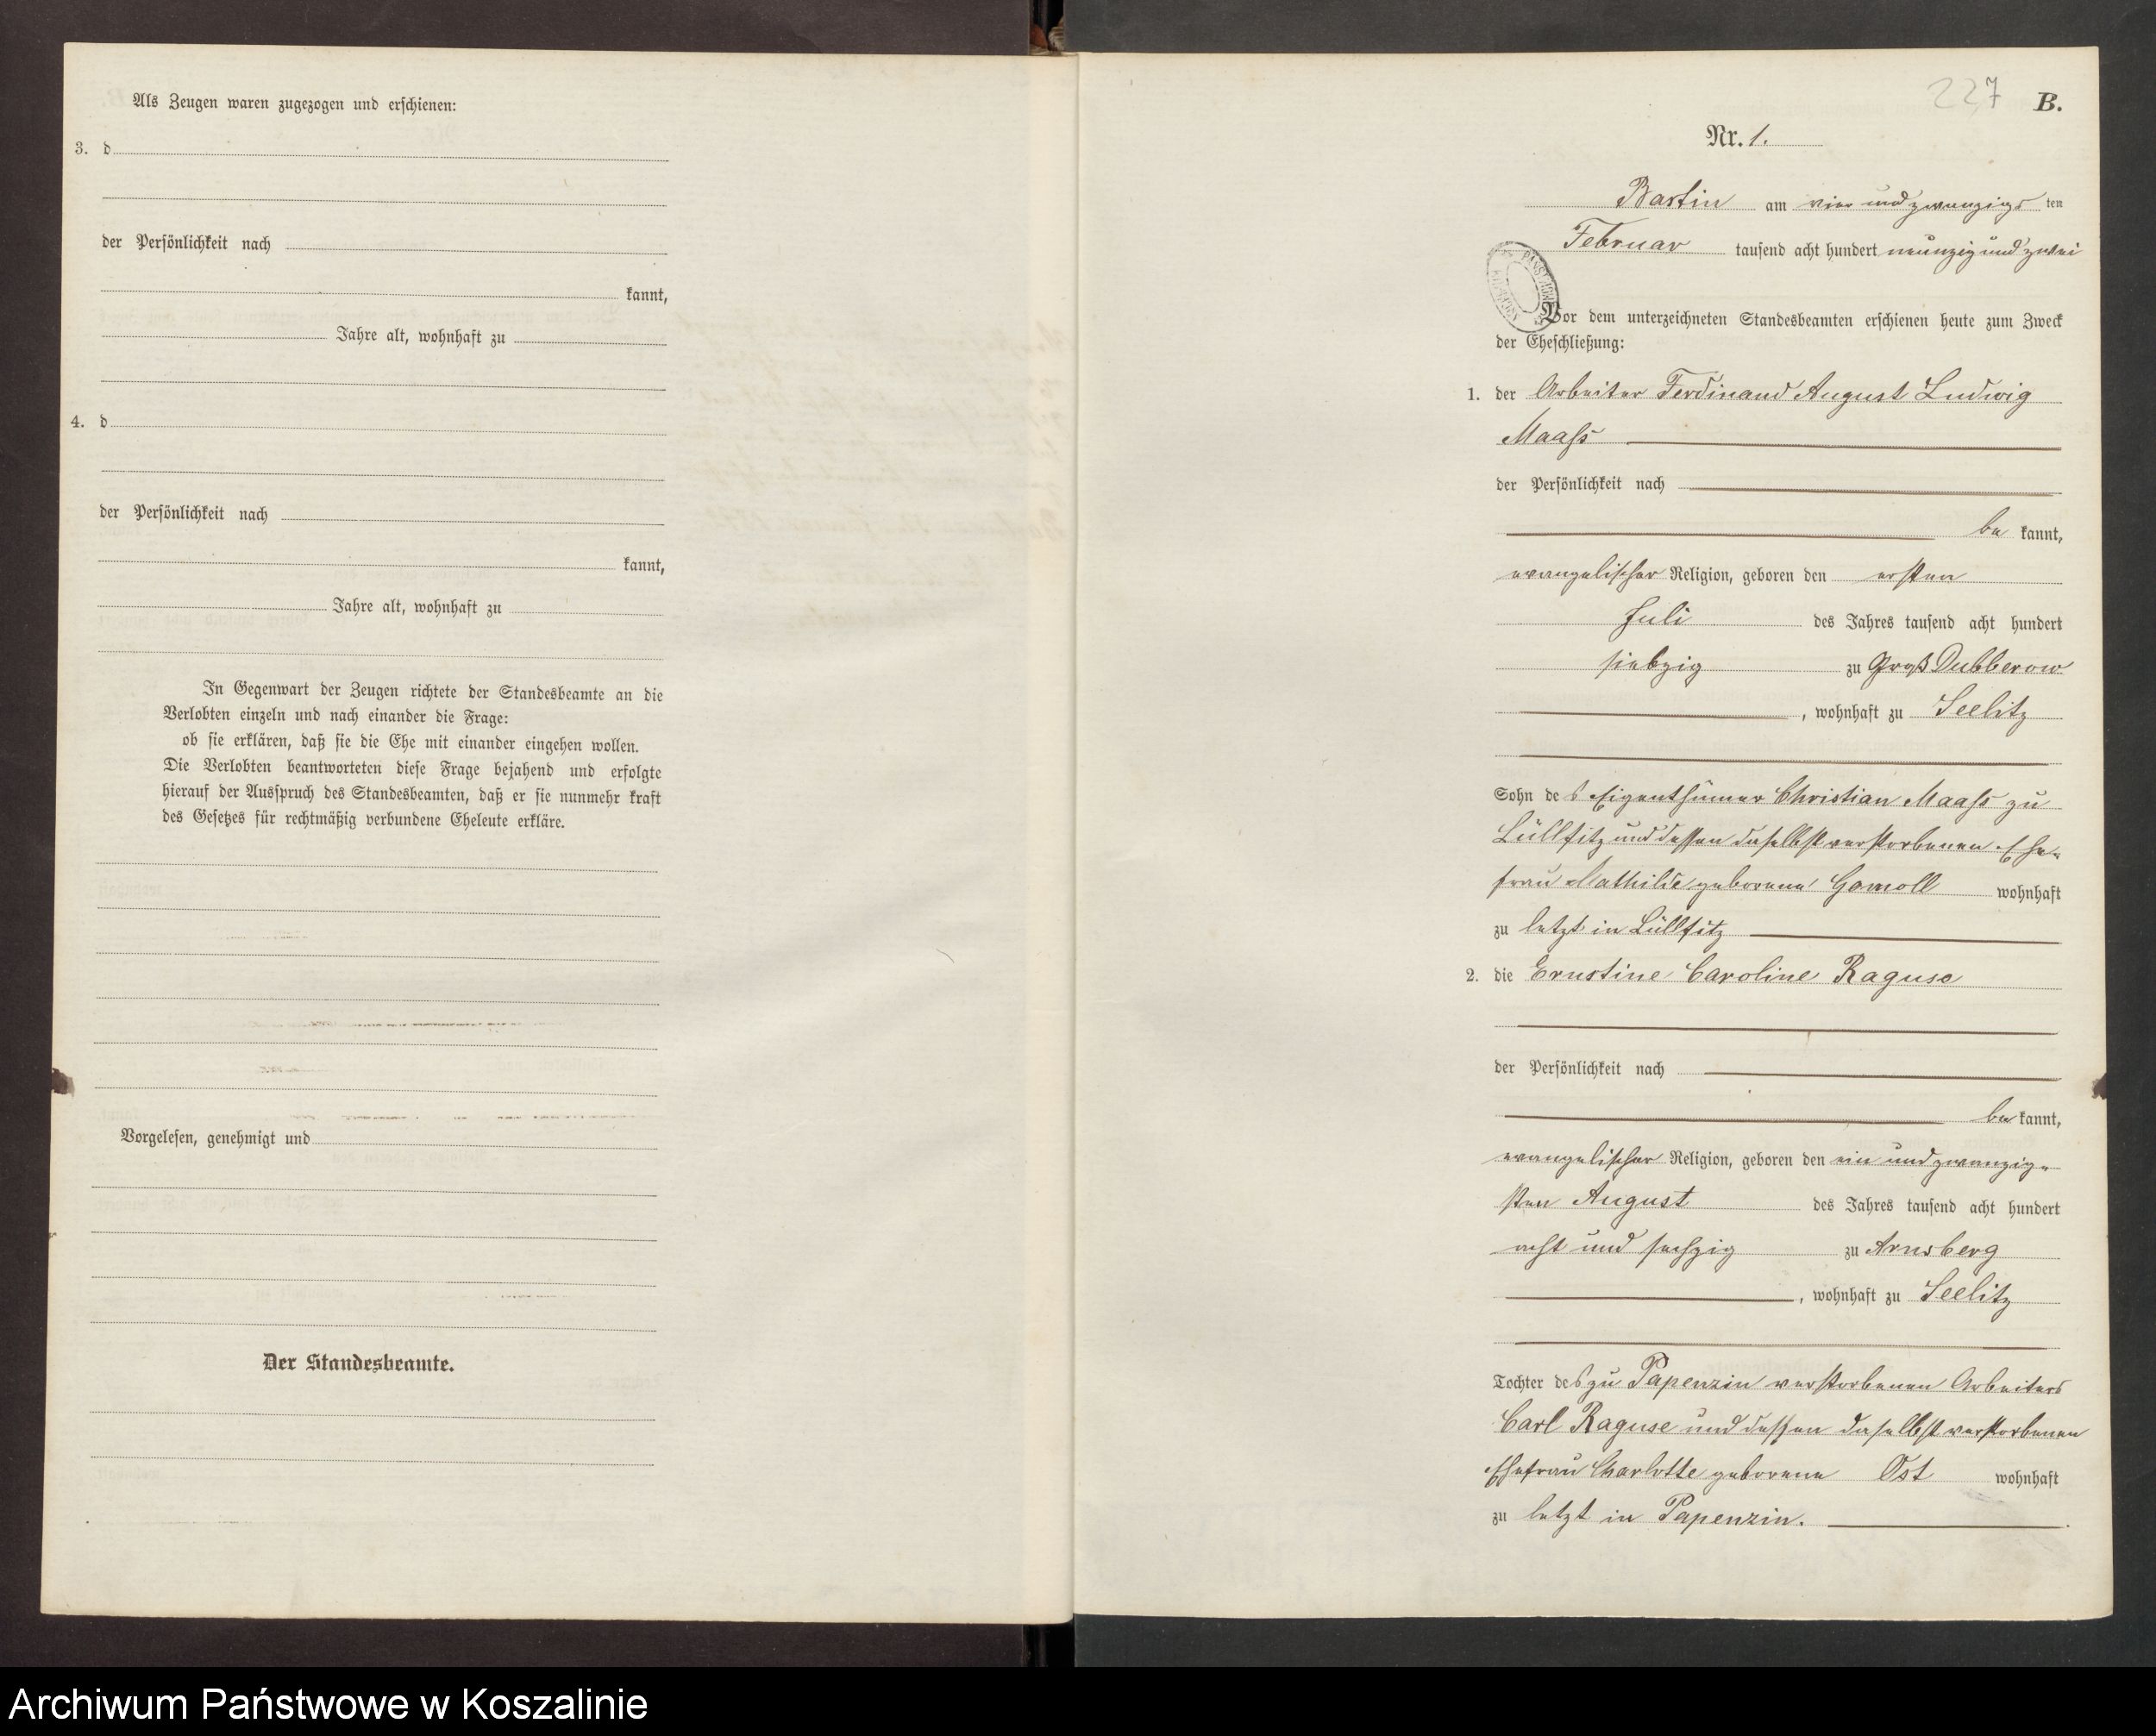 Als Zeugen waren zugezogen und erschienen:
3. d
der Persönlichkeit nach
kannt,
Jahre alt, wohnhaft zu
4. d
der Persönlichkeit nach
kannt,
Jahre alt, wohnhaft zu
In Gegenwart der Zeugen richtete der Standesbeamte an die
Verlobten einzeln und nach einander die Frage:
ob sie erklären, daß sie die Ehe mit einander eingehen wollen.
Die Verlobten beantworteten diese Frage bejahend und erfolgte
hierauf der Ausspruch des Standesbeamten, daß er sie nunmehr kraft
des Gesetzes für rechtmäßig verbundene Eheleute erkläre.
Vorgelesen, genehmigt und
Der Standesbeamte.
227
B.
Nr. 1.
Bartin am vier und zwanzigs ten
Februar tausend acht hundert neunzig und zwei
Vor dem unterzeichneten Standesbeamten erschienen heute zum Zweck
der Eheschließung:
1. der Arbeiter Ferdinand August Ludwig
Maaß
der Persönlichkeit nach
be kannt,
evangelischer Religion, geboren den ersten
Juli des Jahres tausend acht hundert
siebzig zu Groß Dubberow
, wohnhaft zu Seelitz
Sohn des Eigenthümer Christian Maaß zu
Lüllfitz und dessen daselbst verstorbenen Ehe-
frau Mathilde geborene Gomoll wohnhaft
zu letzt in Lüllfitz
2. die Ernstine Caroline Raguse
der Persönlichkeit nach
be kannt,
evangelischer Religion, geboren den ein und zwanzig-
sten August des Jahres tausend acht hundert
acht und sechzig zu Arnsberg
, wohnhaft zu Seelitz
Tochter des zu Papenzin verstorbenen Arbeiters
Carl Raguse und dessen daselbst verstorbenen
Ehefrau Charlotte geborene Ost wohnhaft
zu letzt in Papenzin.
Archiwum Państwowe w Koszalinie